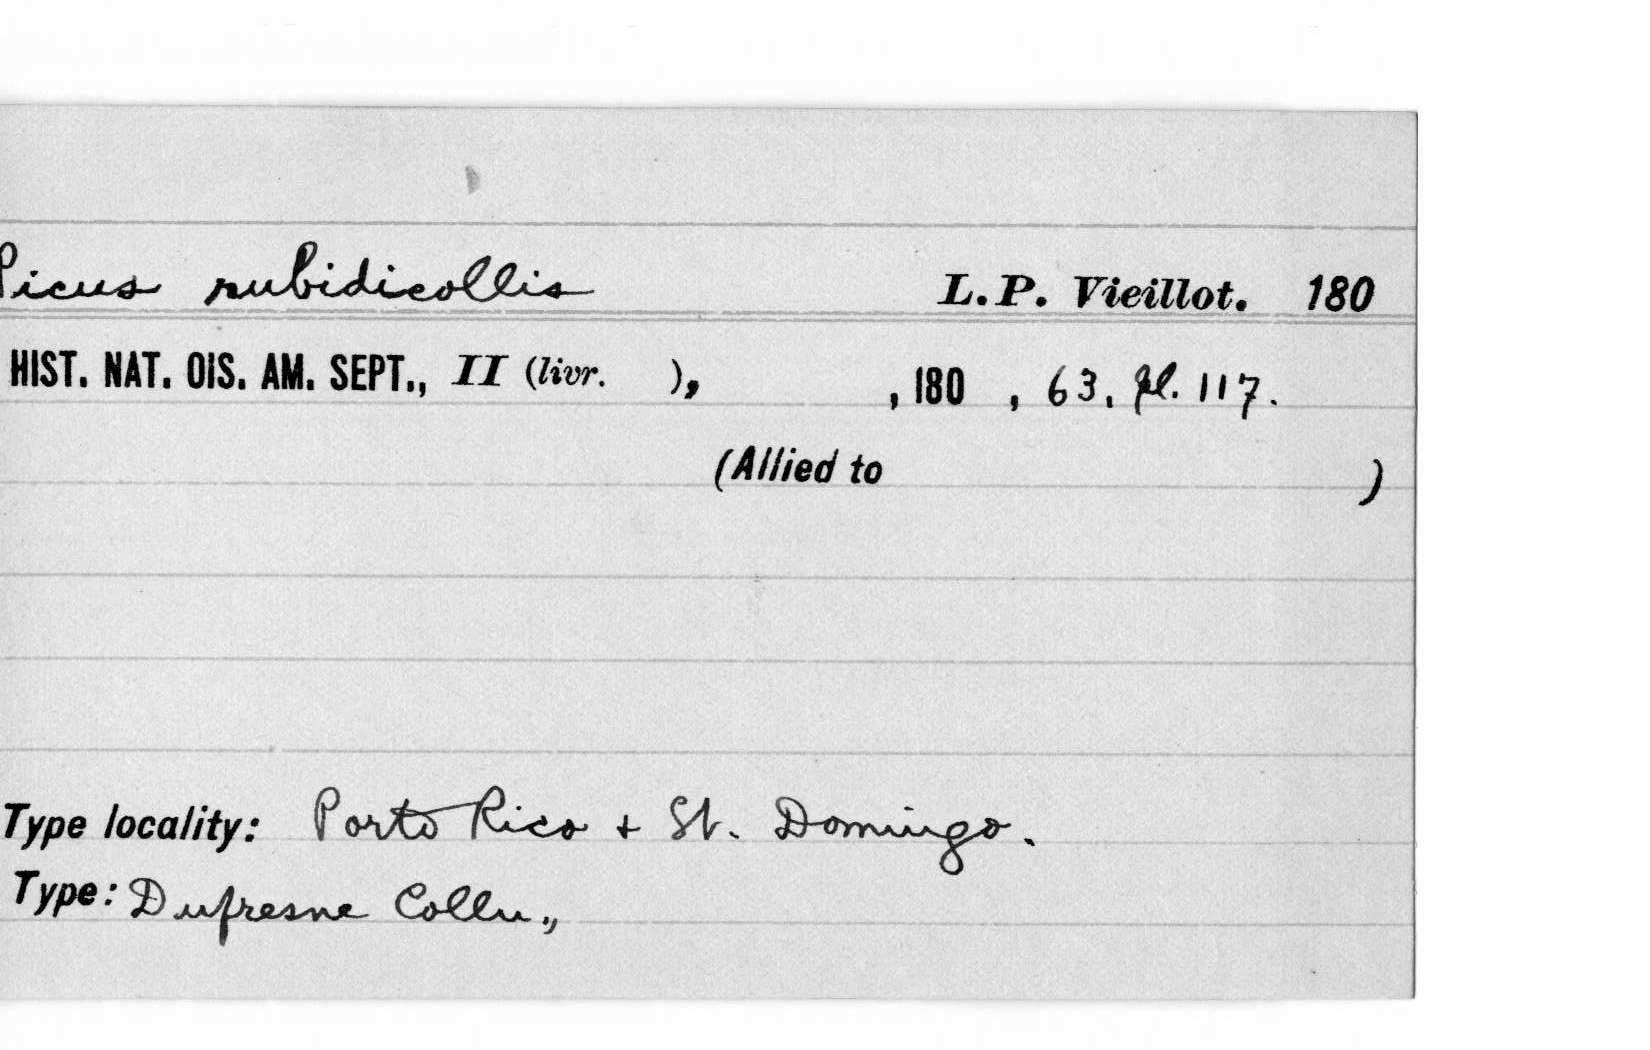 Picus rubidicollis L.P. Vieillot. 180
HIST. NAT. OIS. AM. SEPT., II (livr. ), , 180 , 63, pl. 117.
(Allied to )
Type locality: Porto Rico + St. Domingo.
Type: Dufresne Colln.,